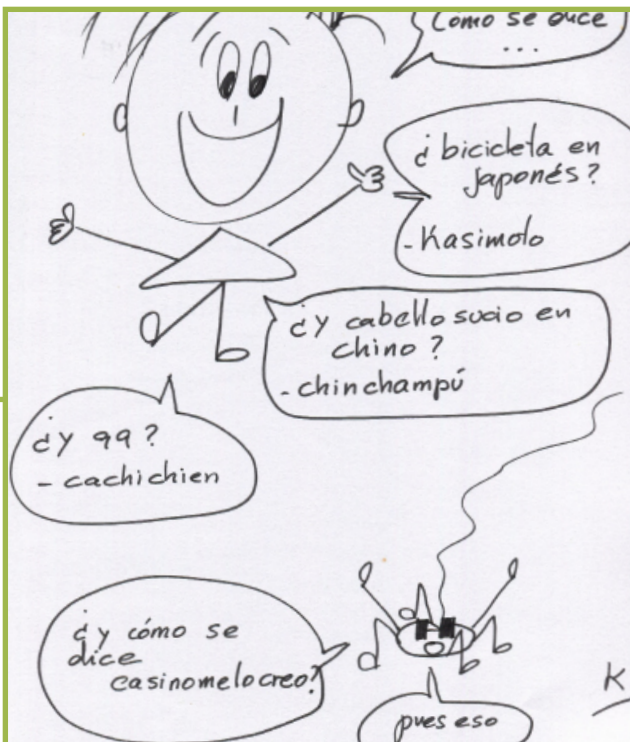 Cómo se dice
...
¿bicicleta en
japonés?
- Kasimoto
¿Y cabello sucio en
chino?
- chinchampú
¿Y 99?
- cachichien
¿y cómo se
dice
casinomelocreo?
pues eso
K